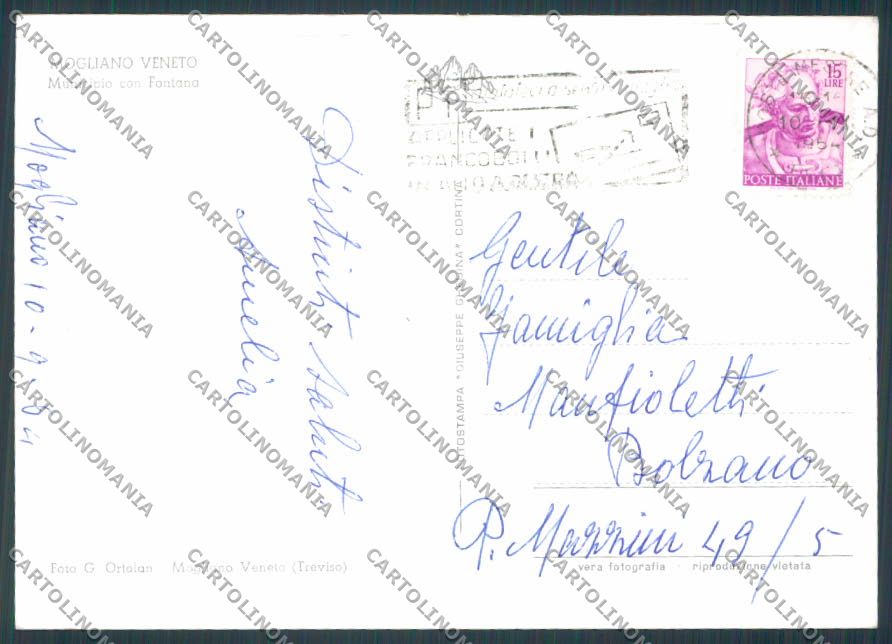 MOGLIANO VENETO
Municipio con Fontana
Mogliano 10-9-64
Distinti saluti
Amelia
Foto G. Ortolan Mogliano Veneto (Treviso)
FOTOSTAMPA "GIUSEPPE GHEDINA" CORTINA
APPLICATE I
FRANCOBOLLI
IN ALTO A DESTRA
15
LIRE
POSTE ITALIANE
Gentile
Famiglia
Manfioletti
Bolzano
P. Mazzini 49/5
vera fotografia - riproduzione vietata
CARTOLINOMANIA